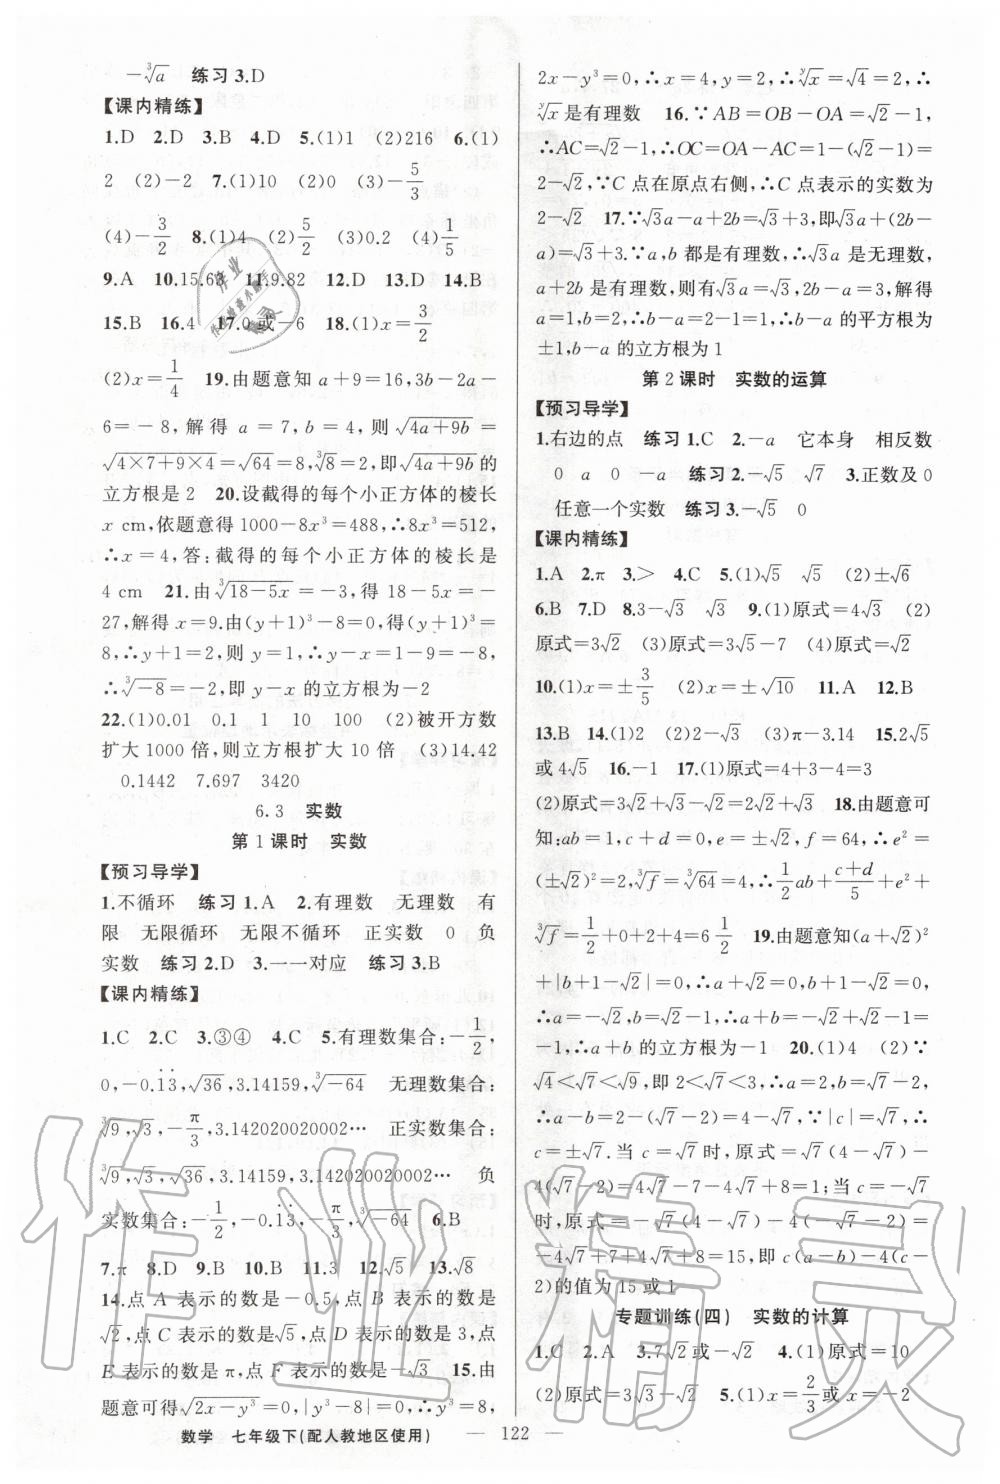 －∛a　练习3.D
【课内精练】
1.D　2.D　3.B　4.D　5.(1)1　(2)216　6.(1)
2　(2)－2　7.(1)10　(2)0　(3)－5/3
(4)－3/2　8.(1)4　(2)5/2　(3)0.2　(4)1/5
9.A　10.15.63　11.9.82　12.D　13.D　14.B
15.B　16.4　17.0或－6　18.(1)x＝3/2
(2)x＝1/4　19.由题意知a＋9＝16,3b－2a－
6＝－8,解得a＝7,b＝4,则√(4a＋9b)＝
√(4×7＋9×4)＝√64＝8,∛8＝2,即√(4a＋9b)的
立方根是2　20.设截得的每个小正方体的棱长
x cm,依题意得1000－8x³＝488,∴8x³＝512,
∴x＝4,答:截得的每个小正方体的棱长是
4 cm　21.由∛(18－5x)＝－3,得18－5x＝－
27,解得x＝9.由(y＋1)³－8＝0,得(y＋1)³＝
8,∴y＋1＝2,则y＝1,∴y－x＝1－9＝－8,
∴∛－8＝－2,即y－x的立方根为－2
22.(1)0.01　0.1　1　10　100　(2)被开方数
扩大1000倍,则立方根扩大10倍　(3)14.42
0.1442　7.697　3420
6.3　实数
第1课时　实数
【预习导学】
1.不循环　练习1.A　2.有理数　无理数　有
限　无限循环　无限不循环　正实数　0　负
实数　练习2.D　3.一一对应　练习3.B
【课内精练】
1.C　2.C　3.③④　4.C　5.有理数集合:－1/2,
0,－0.1̇3̇,√36,3.14159,∛－64　无理数集合:
∛9,√3,－π/3,3.142020020002…　正实数集合:
∛9,√3,√36,3.14159,3.142020020002…　负
实数集合:－1/2,－0.1̇3̇,－π/3,∛－64　6.B
7.π　8.D　9.B　10.B　11.3　12.√5　13.√8
14.点A表示的数是－0.5,点B表示的数是
√2,点C表示的数是√5,点D表示的数是3,点
E表示的数是π,点F表示的数是－√3　15.由
题意可得√(2x－y³)＝0,|y³－8|＝0,∴y³＝8,
2x－y³＝0,∴x＝4,y＝2,∴ʸ√x＝√4＝2,∴
ʸ√x是有理数　16.∵AB＝OB－OA＝√2－1,
∴AC＝√2－1,∴OC＝OA－AC＝1－(√2－1)＝
2－√2,∵C点在原点右侧,∴C点表示的实数为
2－√2　17.∵√3a－a＋2b＝√3＋3,即√3a＋(2b－
a)＝√3＋3,∵a,b都是有理数,∴√3a是无理数,
a＋2b是有理数,则有√3a＝√3,2b－a＝3,解得
a＝1,b＝2,∴b－a＝2－1＝1,∴b－a的平方根为
±1,b－a的立方根为1
第2课时　实数的运算
【预习导学】
1.右边的点　练习1.C　2.－a　它本身　相反数
0　a　0　－a　练习2.－√5　√7　3.正数及0
任意一个实数　练习3.－√5　0
【课内精练】
1.A　2.π　3.＞　4.C　5.(1)√5　√5　(2)±√6
6.B　7.D　8.3－√3　√3　9.(1)原式＝4√3　(2)
原式＝3√2　(3)原式＝3√5－7　(4)原式＝√2
10.(1)x＝±3/5　(2)x＝±√10　11.A　12.B
13.B　14.(1)2　(2)2－√3　(3)π－3.14　15.2√5
或4√5　16.－1　17.(1)原式＝4＋3－4＝3
(2)原式＝3√2＋√3－√2＝2√2＋√3　18.由题意可
知:ab＝1,c＋d＝0,e＝±√2,f＝64,∴e²＝
(±√2)²＝2,∛f＝∛64＝4,∴1/2ab＋(c＋d)/5＋e²＋
∛f＝1/2＋0＋2＋4＝6 1/2　19.由题意知(a＋√2)²
＋|b＋1－√2|＝0,∴a＋√2＝0,b＋1－√2＝0,
∴a＝－√2,b＝√2－1,∴a＋b＝－√2＋√2－1＝－
1,∴a＋b的立方根为－1　20.(1)4　(2)∵
√4＜√7＜√9,即2＜√7＜3,∴a＝2,b＝√7－2,
∴a－b＝2－(√7－2)＝4－√7,∵|c|＝√7,∴
c＝±√7,当c＝√7时,原式＝√7(4－√7)－
4(√7－2)＝4√7－7－4√7＋8＝1;当c＝－√7
时,原式＝－√7(4－√7)－4(－√7－2)＝
－4√7＋7＋4√7＋8＝15,即c(a－b)－4(c－
2)的值为15或1
专题训练(四)　实数的计算
1.C　2.A　3.7√2或－√2　4.(1)原式＝10
(2)原式＝3√3－√2　5.(1)x＝2/3或x＝－2
数学　七年级下(配人教地区使用)　— 122 —
作业精灵